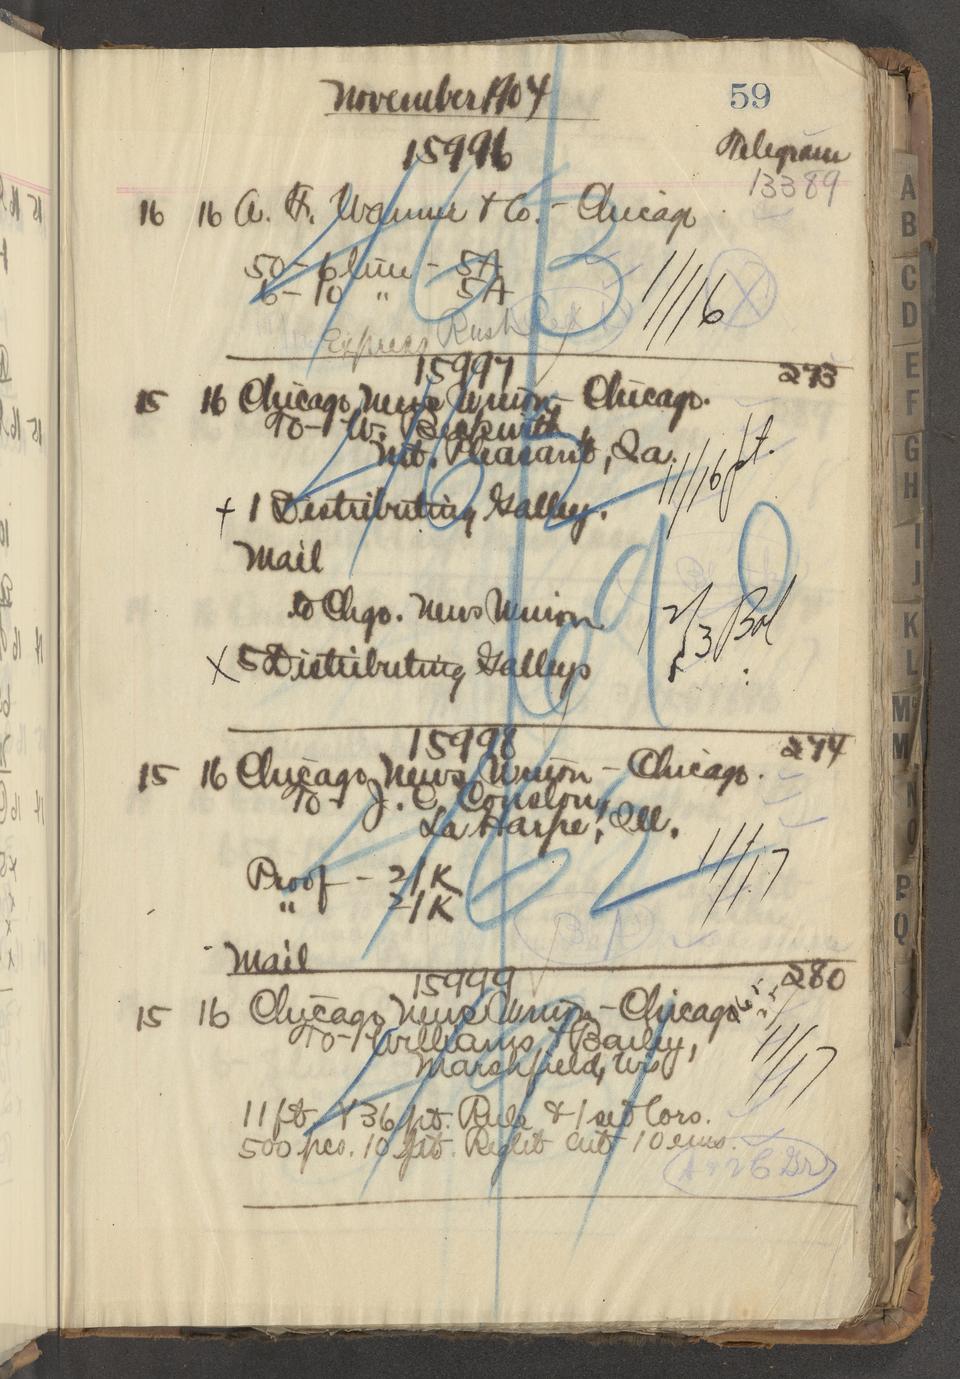 November 1904
59
15996
Telegram
13389
16 16 A. F. Wanner & Co. - Chicago
50 - 6 line - 5A
6 - 10 " 5A
11/16
X
Express Rush
15997
273
15 16 Chicago News Union - Chicago.
To - W. Beckwith,
Mt. Pleasant, Ia.
11/16 pt.
+ 1 Distributing Galley.
Mail
to Chgo. News Union
2/3 Bal
X 5 Distributing Galleys
15998
274
15 16 Chicago News Union - Chicago.
To - J. C. Coulson,
La Harpe, Ill.
Proof - 21K
" 21K
11/17
Mail
15999
280
15 16 Chicago News Union - Chicago
To - Williams & Bailey,
Marshfield, Wis
11/17
11 ft. 136 pt. Rule & 1 set Cors.
500 pcs. 10 pt. Right Cut 10 ems.
A
B
C
D
E
F
G
H
I
J
K
L
M
M
N
O
P
Q